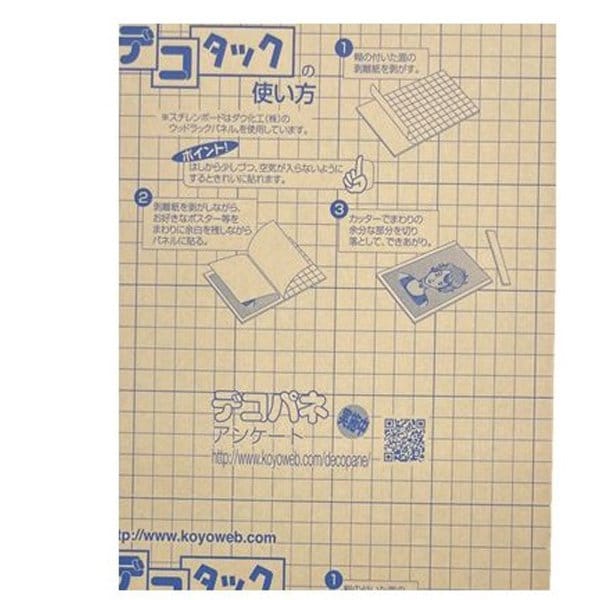 デコタック
の
使い方
※スチレンボードはダウ化工(株)の
ウッドラックパネル®を使用しています。
ポイント!
はしから少しづつ、空気が入らないように
するときれいに貼れます。
1
糊の付いた面の
剥離紙を剥がす。
2
剥離紙を剥がしながら、
お好きなポスター等を
まわりに余白を残しながら
パネルに貼る。
3
カッターでまわりの
余分な部分を切り
落として、できあがり。
デコパネ
アンケート
実施中
http://www.koyoweb.com/decopane/
tp://www.koyoweb.com
デコタック
1
糊の付いた面の